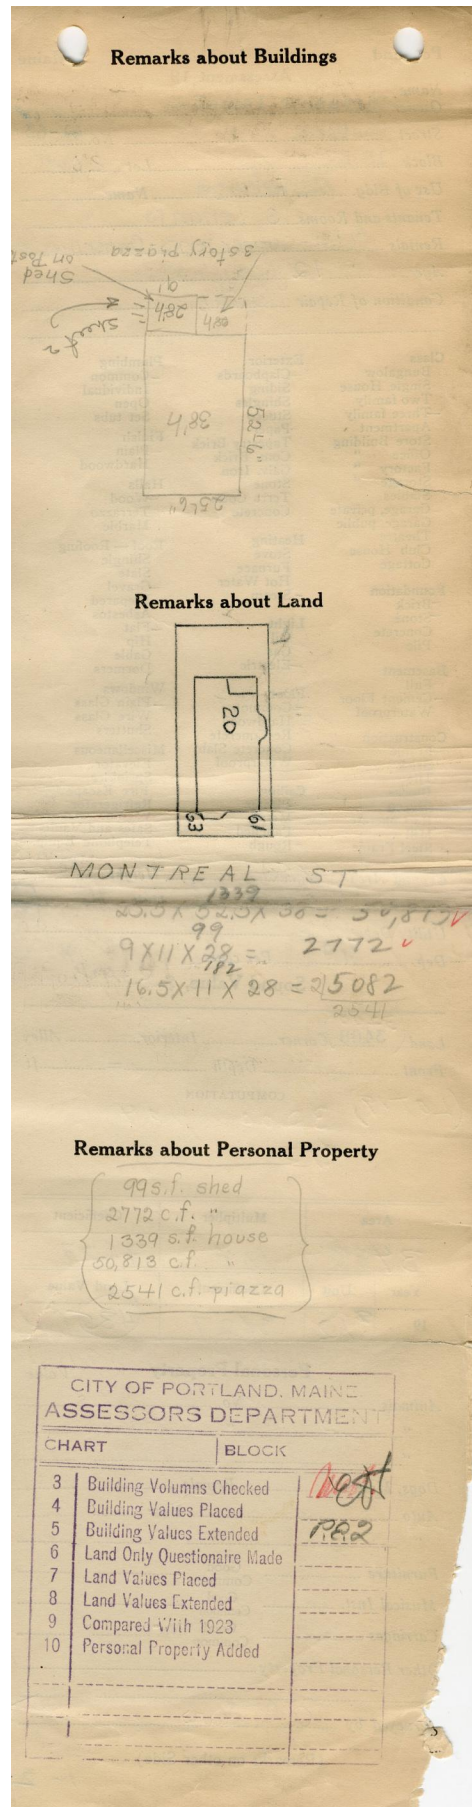 Remarks about Buildings
3 story piazza
Shed
on Post
9'
11'
28'h
28'h
Shed 2
38'h
52'6"
25'6"
Remarks about Land
20
63
61
MONTREAL ST
1339
25.5 X 52.5 X 38 = 50,813 ✓
99
9 X 11 X 28 = 2772 ✓
182
16.5 X 11 X 28 = 2)5082
2541
Remarks about Personal Property
99 s.f. shed
2772 c.f. "
1339 s.f. house
50,813 c.f. "
2541 c.f. piazza
CITY OF PORTLAND, MAINE
ASSESSORS DEPARTMENT
CHART BLOCK
3 Building Volumns Checked
4 Building Values Placed
5 Building Values Extended
6 Land Only Questionaire Made
7 Land Values Placed
8 Land Values Extended
9 Compared With 1923
10 Personal Property Added